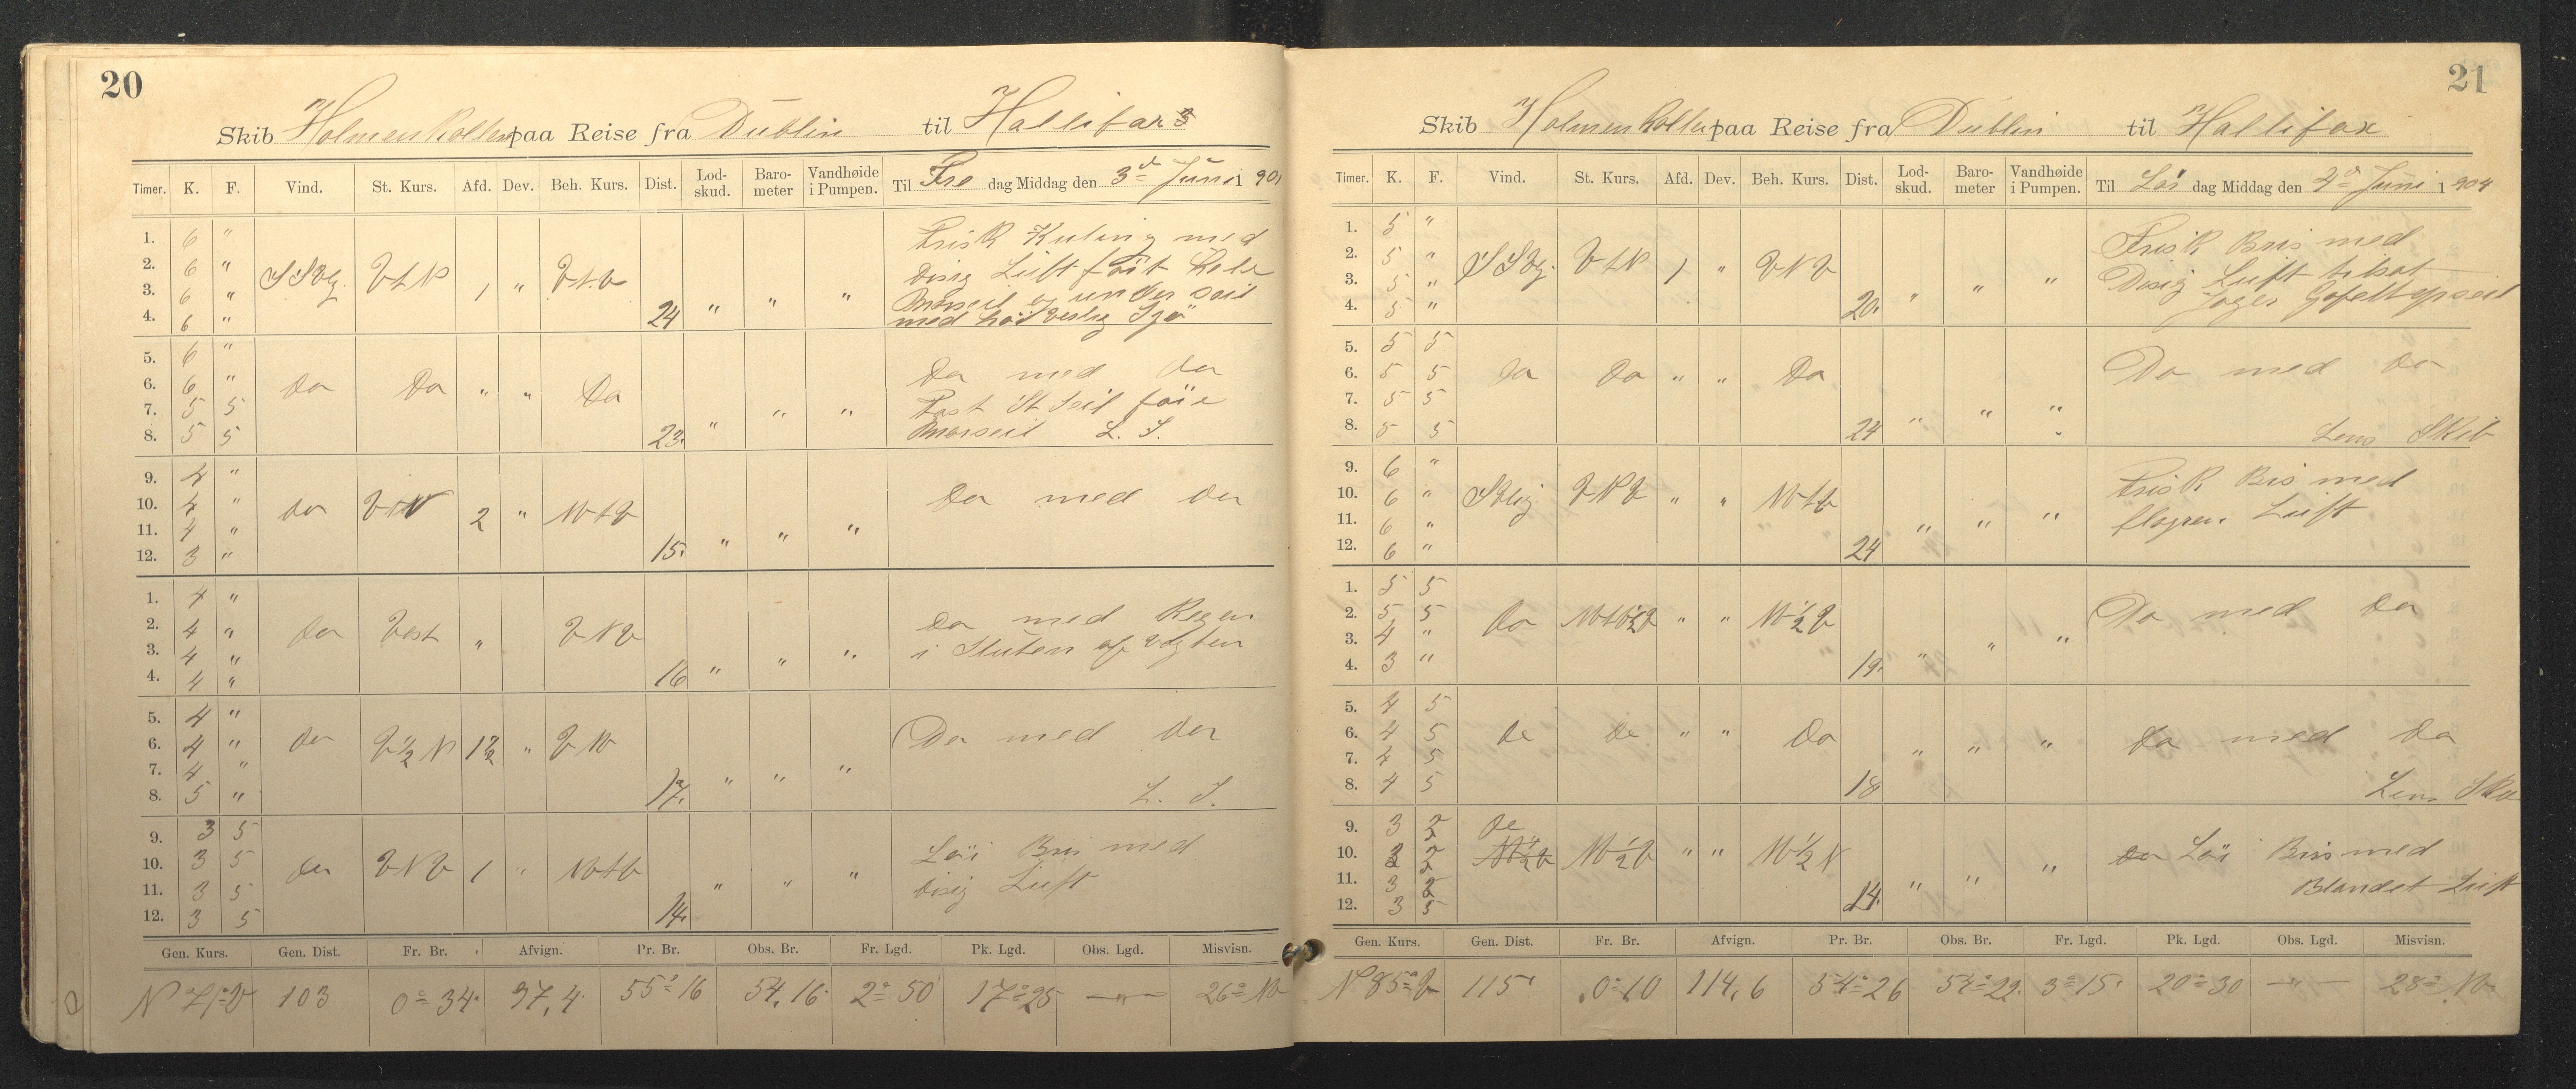 20
Skib Holmenkollen paa Reise fra Dublin til Hallifax
Timer. K. F. Vind. St. Kurs. Afd. Dev. Beh. Kurs. Dist. Lod-skud. Baro-meter Vandhøide i Pumpen. Til Fre dag Middag den 3d Juni 190
1. 6 " Frisk Kuling med
2. 6 " SSVlg. VtN 1 " VtN Disig Luft
3. 6 " " " "
4. 6 " 24 med Sjö
5. 6 "
6. 6 " Do Do " " Do Do med Do
7. 5 5 " " " Fast St Seil
8. 5 5 23. Mærseil L. S.
9. 4 "
10. 4 " Do VtN 2 " NVtV Do med Do
11. 4 " " " "
12. 3 " 15.
1. 4 "
2. 4 " Do Vest " VNV Do med Regen
3. 4 " " " " i Sluten af Vagten
4. 4 " 16
5. 4 "
6. 4 " Do V½N 1½ " VNV Do med Do
7. 4 " " " "
8. 5 " 17. L. S.
9. 3 5
10. 3 5 Do VNV 1 " NVtV Löi Bris med
11. 3 5 " " " Disig Luft
12. 3 5 14.
Gen. Kurs. Gen. Dist. Fr. Br. Afvign. Pr. Br. Obs. Br. Fr. Lgd. Pk. Lgd. Obs. Lgd. Misvisn.
N 71° V 103 0° 34' 97,4 55° 16 54,16 2° 50' 17° 25 — " — 26° NV
21
Skib Holmenkollen paa Reise fra Dublin til Hallifax
Timer. K. F. Vind. St. Kurs. Afd. Dev. Beh. Kurs. Dist. Lod-skud. Baro-meter Vandhøide i Pumpen. Til Lör dag Middag den 4d Juni 1904
1. 5 " Frisk Bris med
2. 5 " SSVlg. VtN 1 " VNV Disig Luft tilsat
3. 5 " " " " Jager Gafeltopseil
4. 5 " 20.
5. 5 5
6. 5 5 Do Do " " Do Do med Do
7. 5 5 " " "
8. 5 5 24 Lens Skib
9. 6 " Frisk Bris med
10. 6 " SVlig VNV " " NVtV Luft
11. 6 " " " "
12. 6 " 24
1. 5 5
2. 5 5 Do NVtV½V " " NV½V Do med Do
3. 4 " " " "
4. 3 " 19.
5. 4 5
6. 4 5 Do Do " " Do Do med Do
7. 4 5 " " "
8. 4 5 18 Lens
9. 3 2 Do
10. 3 2 NV½V NV½V " " NV½N Löi Bris med
11. 3 2 " " " Blandet Luft
12. 3 5 14.
Gen. Kurs. Gen. Dist. Fr. Br. Afvign. Pr. Br. Obs. Br. Fr. Lgd. Pk. Lgd. Obs. Lgd. Misvisn.
N 85° V 115' 0° 10 114,6 54° 26 54° 22 3° 15' 20° 30 — " — 28° NV